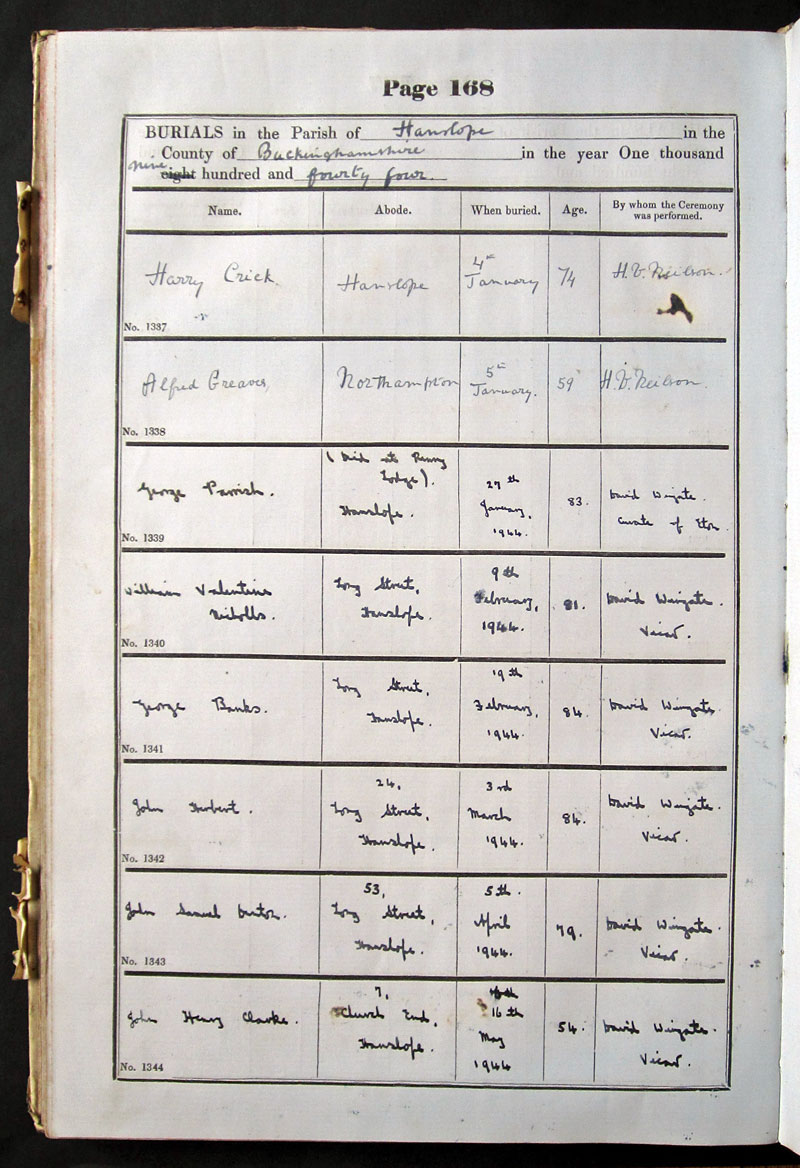 Page 168
BURIALS in the Parish of Hanslope in the
County of Buckinghamshire in the year One thousand
nine
eight hundred and fourty four.
Name. Abode. When buried. Age. By whom the Ceremony was performed.
Harry Crick. Hanslope 4th January 74 H.V. Neilson.
No. 1337
Alfred Greaves Northampton 5th January. 59 H.V. Neilson.
No. 1338
(Died at Renny
Lodge).
George Parrish. Hanslope. 27th January, 1944. 83. David Wingate. Curate of Eton.
No. 1339
William Valentine Nicholls. Long Street, Hanslope. 9th February, 1944. 81. David Wingate. Vicar.
No. 1340
George Banks. Long Street, Hanslope. 19th February, 1944. 84. David Wingate. Vicar.
No. 1341
John Herbert. 24, Long Street, Hanslope. 3rd March 1944. 84. David Wingate. Vicar.
No. 1342
John Samuel 53, Long Street, Hanslope. 5th. April 1944. 79. David Wingate. Vicar.
No. 1343
John Henry Clarke. 7, Church End, Hanslope. 16th May 1944 54. David Wingate. Vicar.
No. 1344